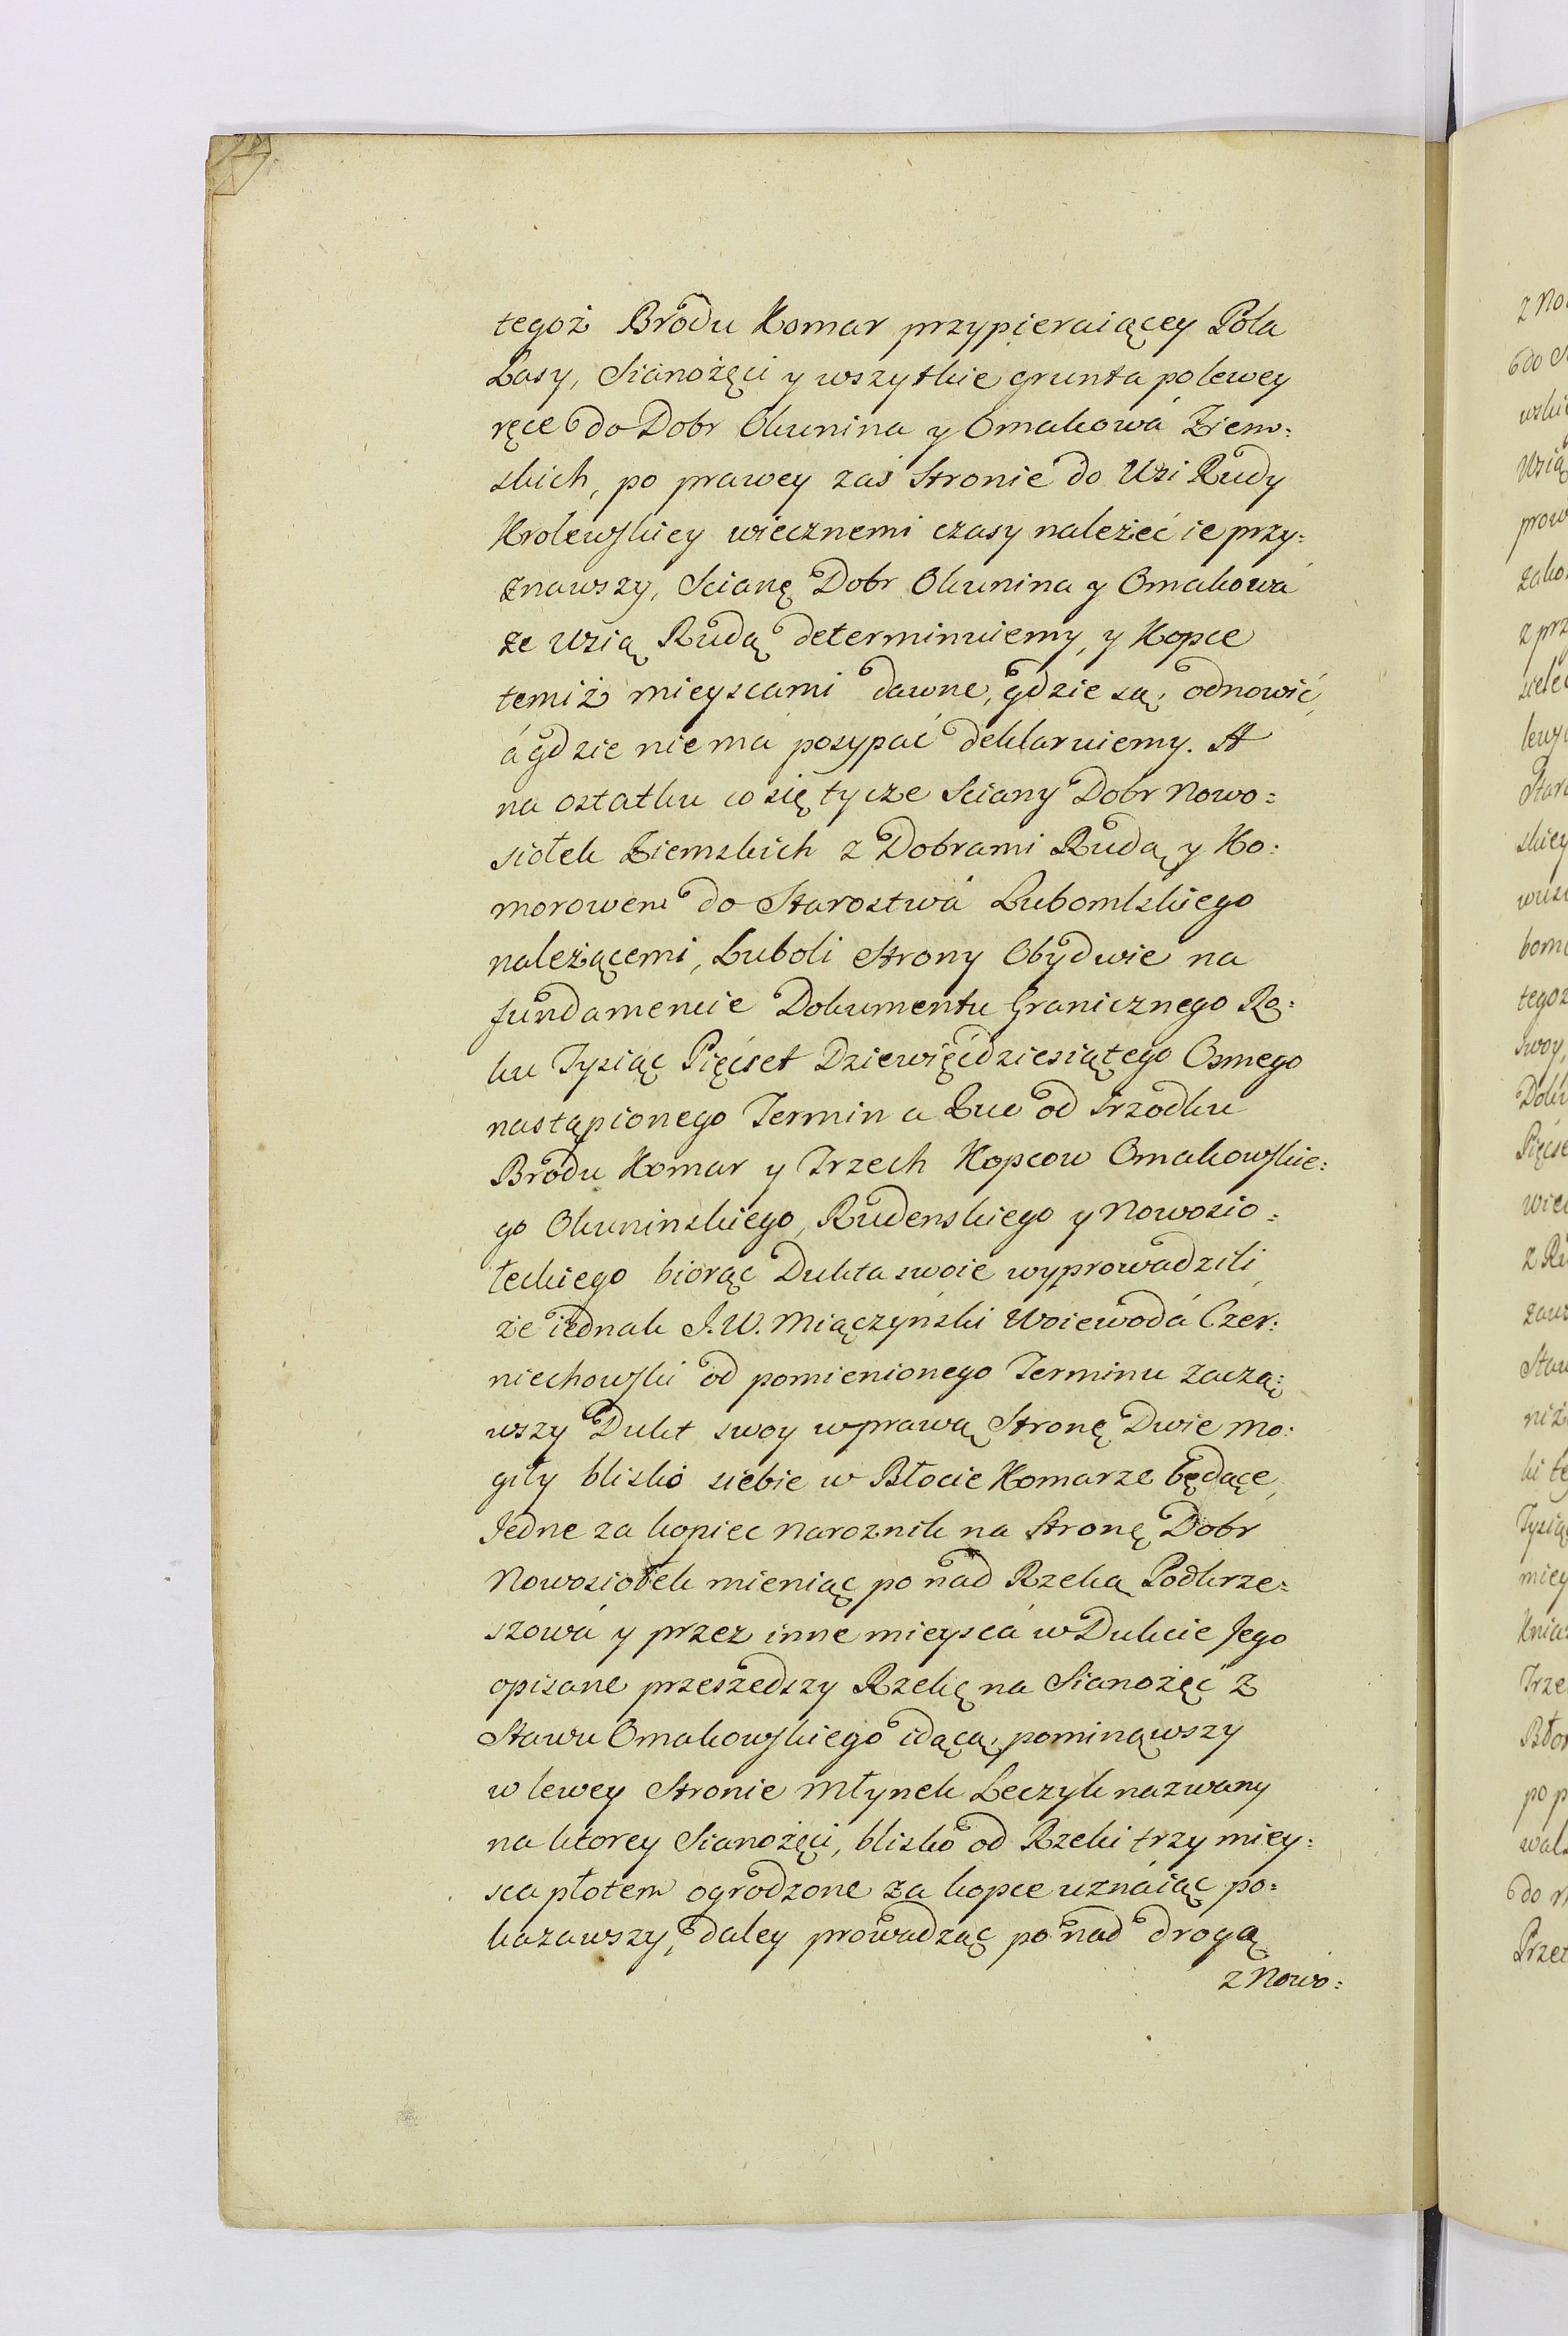 tegoż Brodu Komar przypieraiącey Pola
Lasy, Sianożęci y wszytkie grunta po lewey
ręce do Dobr Okunina y Omakowá Ziem:
skich, po prawey zaś Stronie do Uzi Rudy
Krolewskiey wiecznemi czasy należeć ie przy:
znawszy, Scianę Dobr Okunina y Omakowá
ze Uzią Rudą determinuiemy, y Kopce
temiż mieyscami dawne, gdzie są, odnowić,
á gdzie nie má posypać deklaruiemy. A
na ostatku co się tycze Sciany Dobr Nowo:
siołek Ziemskich z Dobrami Rudą y Ko:
morowem do Starostwá Lubomlskiego
należącemi, Luboli Strony Obydwie na
fundamencie Dokumentu Granicznego Ro:
ku Tysiąc Pięćset Dziewięćdziesiątego Osmego
nastąpionego Termin a Quo od srzodku
Brodu Komar y Trzech Kopcow Omakowskie:
go Okuninskiego, Rudenskiego y Nowosio:
łeckiego biorąc Dukta swoie wyprowadzili,
że iednak J. W. Miączyński Woiewodá Czer:
niechowski od pomienionego Terminu zaczą:
wszy Dukt swoy w prawą Stronę Dwie Mo:
giły blisko siebie w Błocie Komarze będące,
Jedne za kopiec Naroznik na Stronę Dobr
Nowosiołek mieniąc po nad Rzeką Podkrze:
szowá y przez inne mieyscá w Dukcie Jego
opisane przeszedszy Rzekę na Sianożęć z
Stawu Omakowskiego idącą, pominąwszy
w lewey Stronie Młynek Leczyk nazwany
na ktorey Sianożęci, blisko od Rzeki trzy miey:
sca płotem ogrodzone za kopce uznáiąc po:
kazawszy, daley prowadząc po nad drogą
z Nowo: